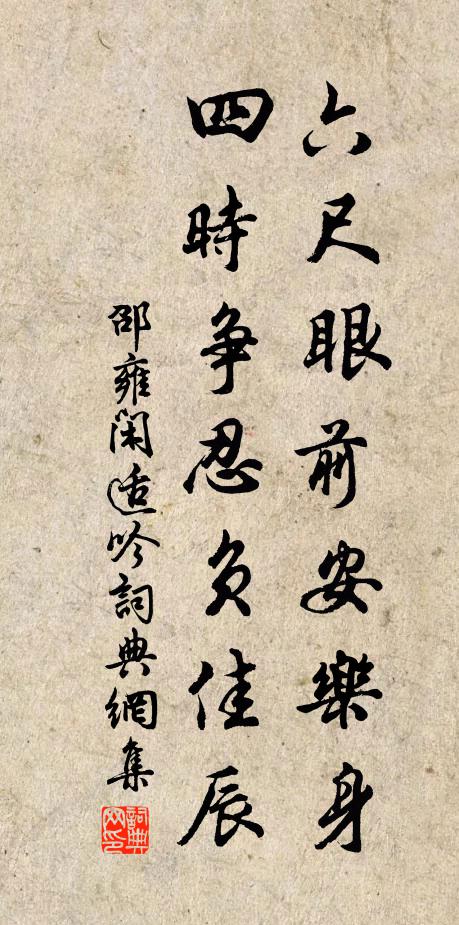 六尺眼前安樂身
四時争忍負佳辰
邵雍閑適吟詞典網集
詞典网印